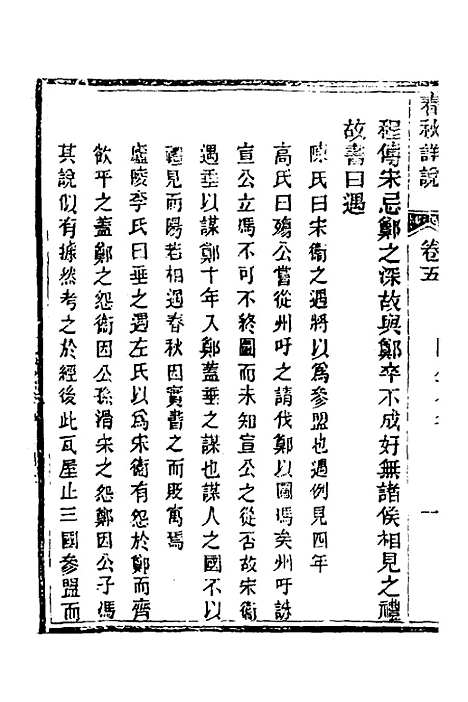 春秋詳說　卷五　一
程傳宋忌鄭之深故與鄭卒不成好無諸侯相見之禮
故書曰遇
陳氏曰宋衞之遇將以爲參盟也遇例見四年
高氏曰殤公嘗從州吁之請伐鄭以圖馮矣州吁誅
宣公立馮不可不終圖而未知宣公之從否故宋衞
遇垂以謀鄭十年入鄭蓋垂之謀也謀人之國不以
禮見而陽若相遇春秋因實書之而貶寓焉
廬陵李氏曰垂之遇左氏以爲宋衞有怨於鄭而齊
欲平之蓋鄭之怨衞因公孫滑宋之怨鄭因公子馮
其說似有據然考之於經後此瓦屋止三國參盟而